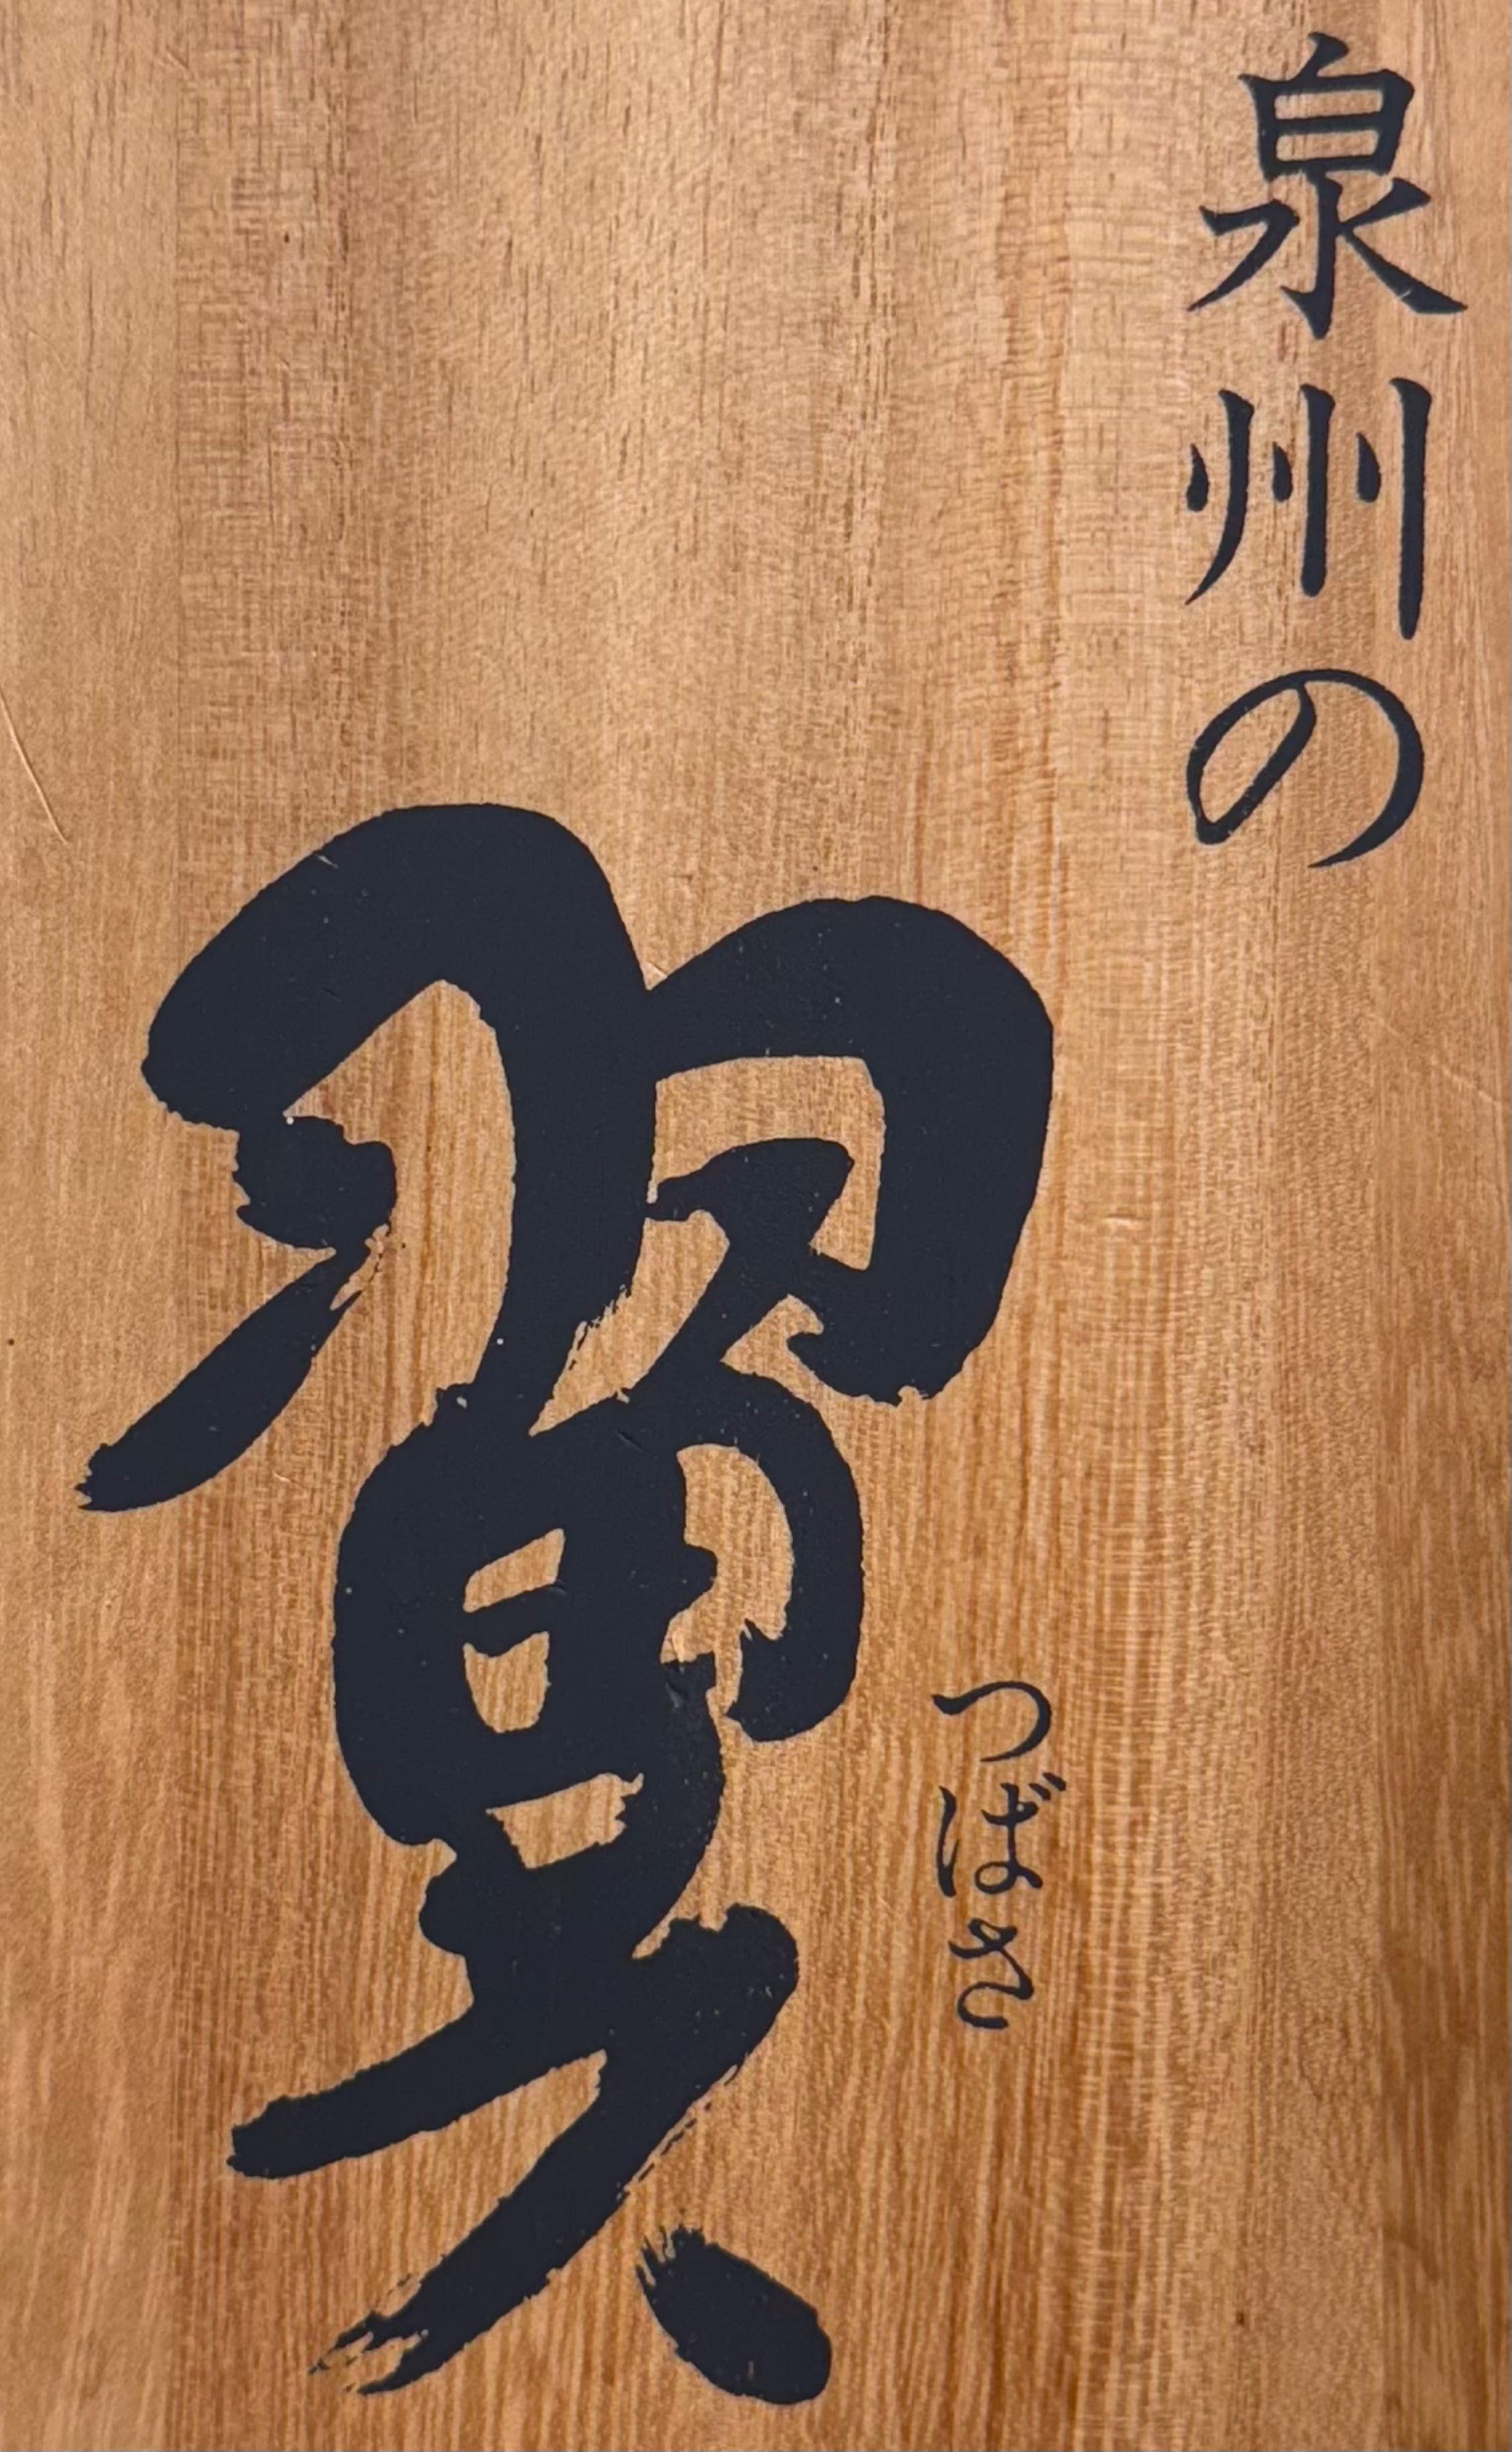 泉州の
翼
つばさ